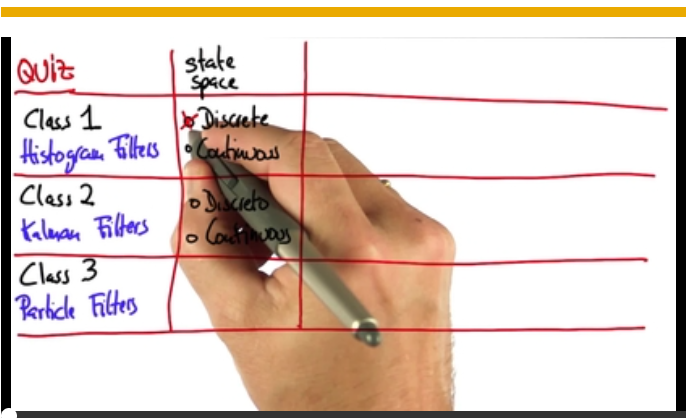 QUIZ
state
space
Class 1
Histogram Filters
Discrete
Continuous
Class 2
Kalman Filters
Discrete
Continuous
Class 3
Particle Filters